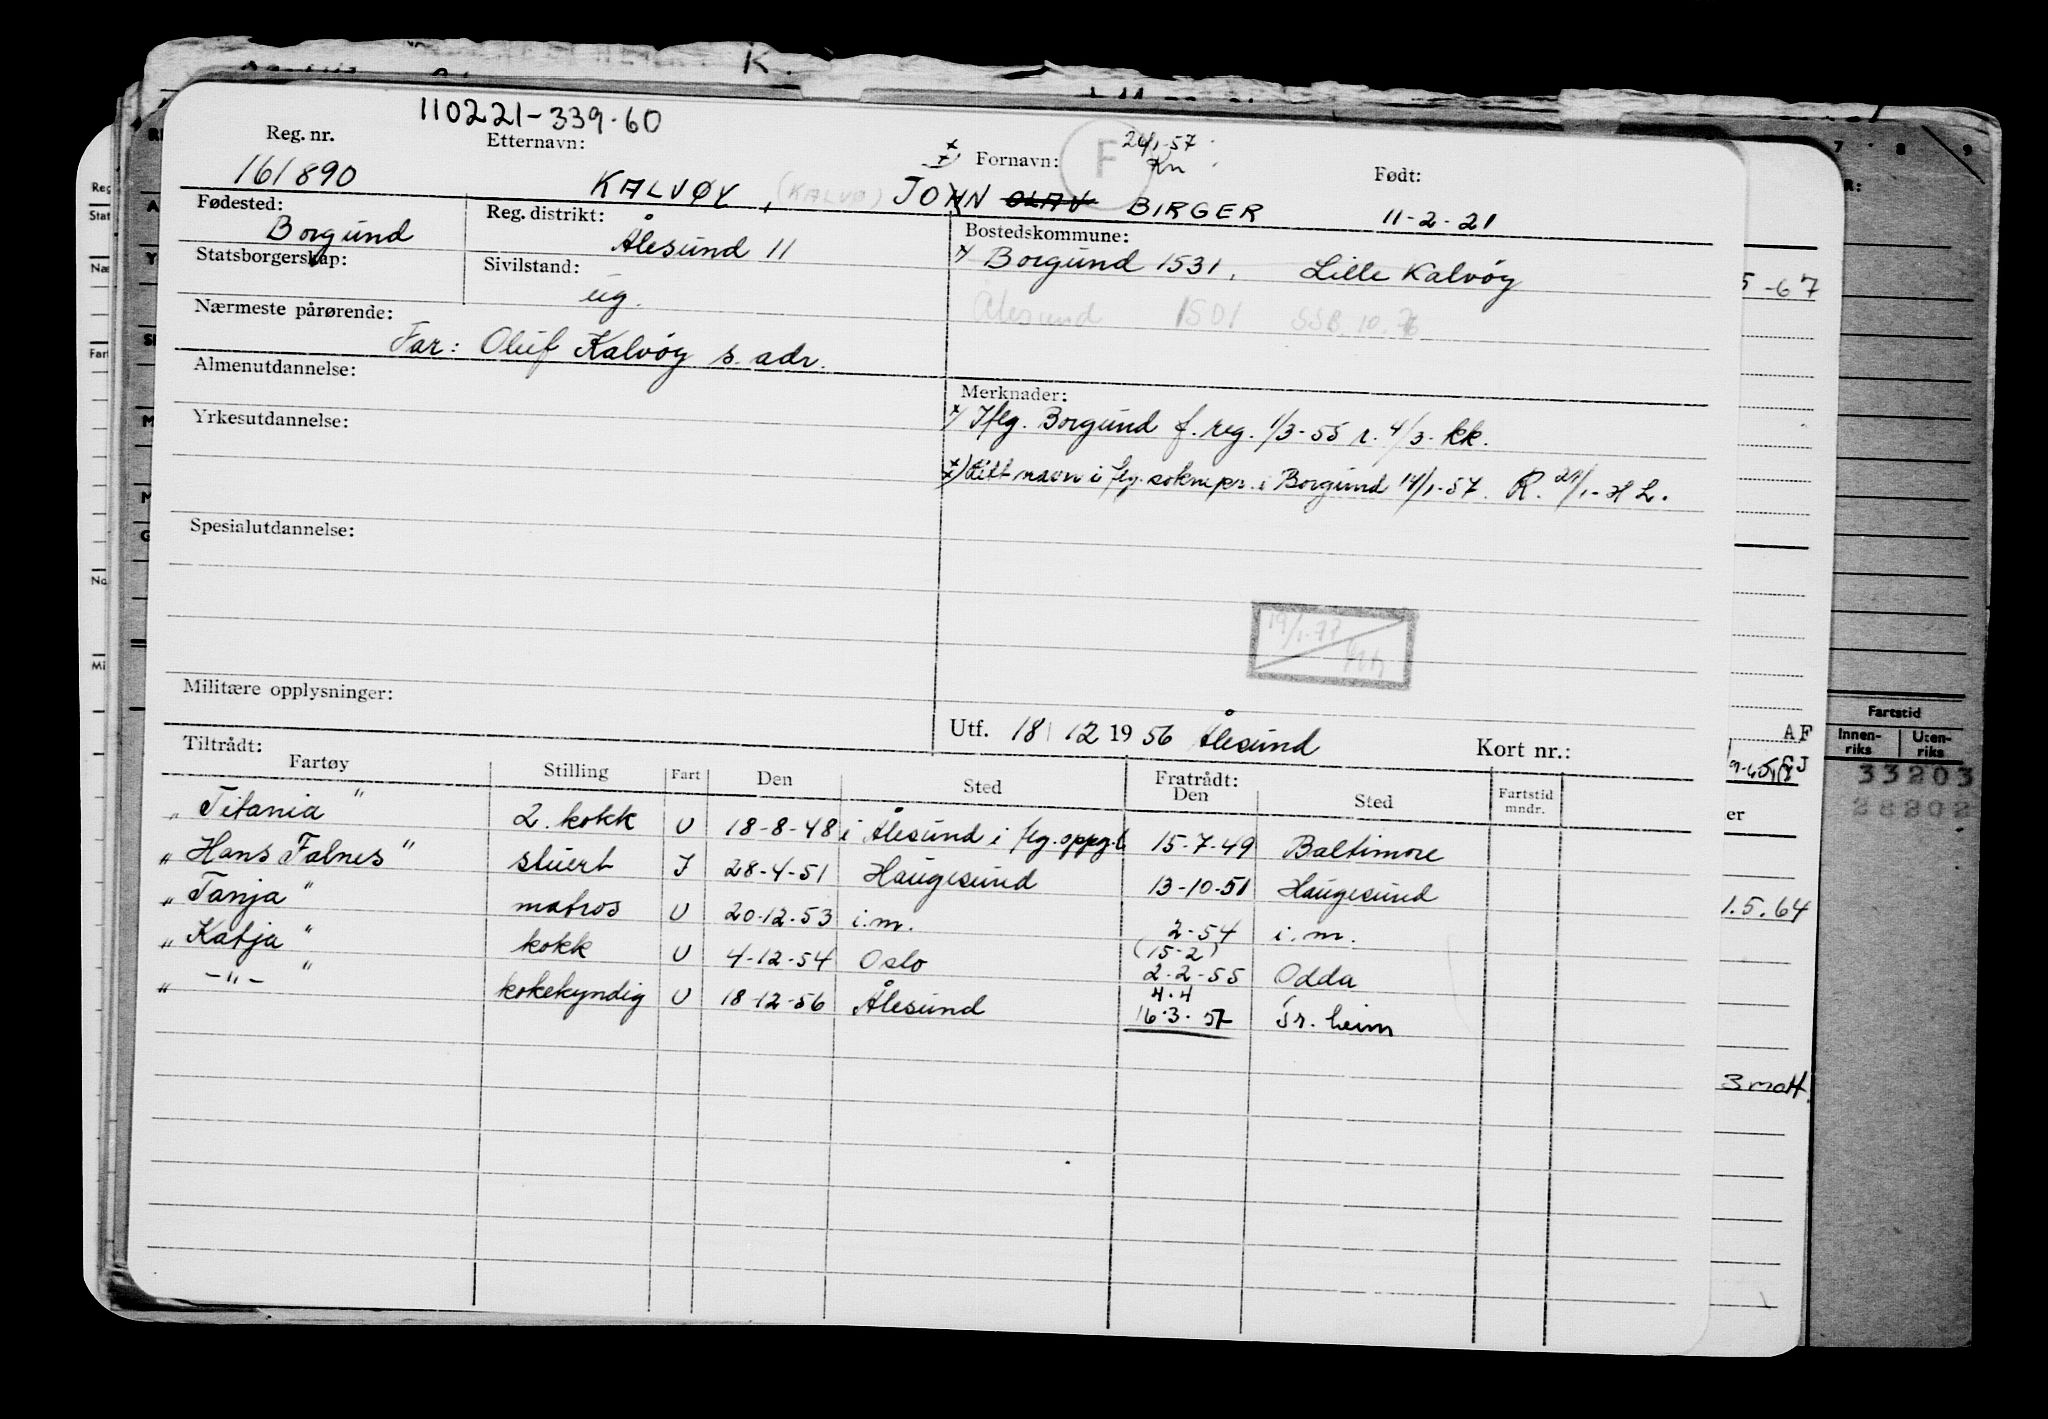 K.
110221-339.60
Reg. nr. Etternavn: Fornavn: F 24/1-57. Kn Født:
161890 KALVØY, (KALVØ) JOHN OLAV BIRGER 11-2-21
Fødested: Reg. distrikt: Bostedskommune:
Borgund Ålesund 11 x Borgund 1531, Lille Kalvöy
Statsborgerskap: Sivilstand:
ug. Ålesund 1501 SSB. 10.76
Nærmeste pårørende:
Far: Oluf Kalvöy s. adr.
Almenutdannelse: Merknader:
x/ Iflg. Borgund f. reg. 1/3-55 r. 4/3. kk.
Yrkesutdannelse:
navn i flg. soknepr. i Borgund 14/1-57. R. 24/1-HL.
Spesialutdannelse:
19/1-77
Militære opplysninger:
Utf. 18/12 1956 Ålesund Kort nr.:
Tiltrådt: Fratrådt:
Fartøy Stilling Fart Den Sted Den Sted Fartstid mndr.
„Titania" 2. kokk U 18-8-48 i Ålesund i flg. oppg. 15-7-49 Baltimore
„Hans Falnes" stuert I 28-4-51 Haugesund 13-10-51 Haugesund
„Tanja" matros U 20-12-53 i.m. 2-54 i.m.
(15-2)
„Katja" kokk U 4-12-54 Oslo 2-2-55 Odda
4.4
„ -"- " kokekyndig U 18-12-56 Ålesund 16.3.57 Tr. heim
7 8 9
5-67
AF
Fartstid
Innenriks Utenriks
33203
28202
er
1.5.64
3 matr.